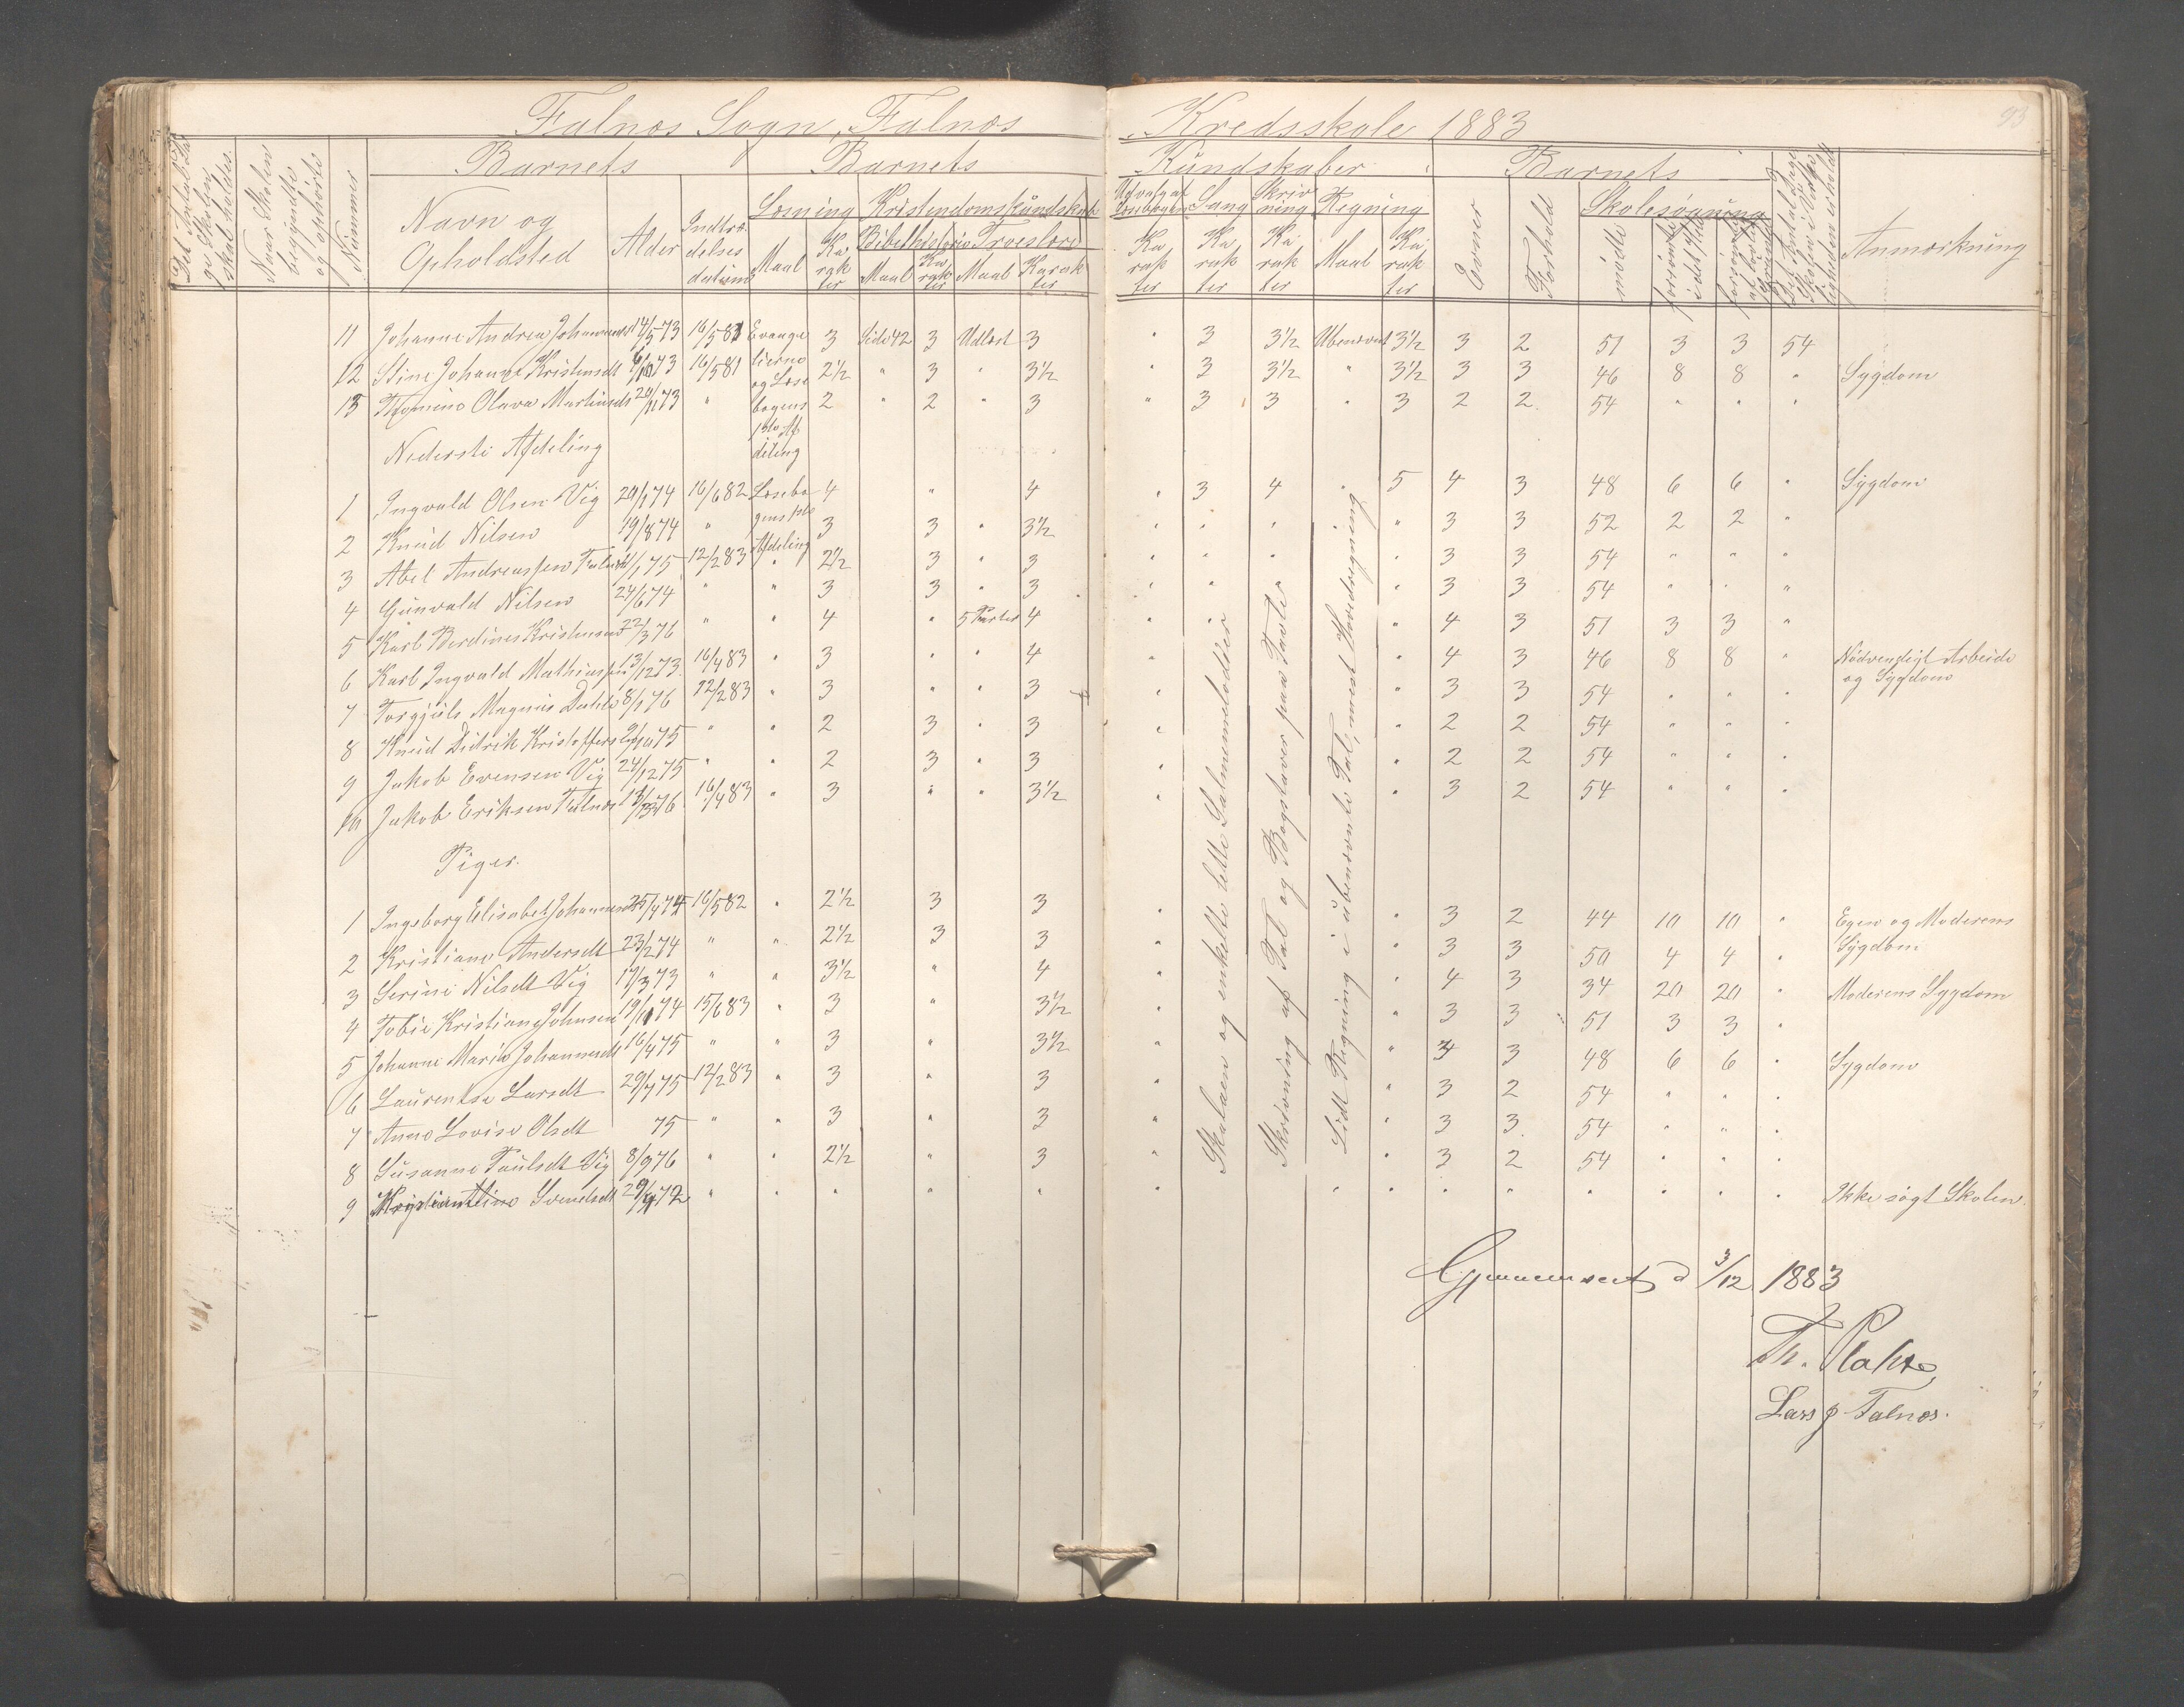 Falnes Sogn, Falnes Kredsskole 1883
93
Det Antal Dage Skolen skal holdes
Naar Skolen begyndte og ophørte
Nummer
Barnets
Navn og Opholdsted
Alder
Indtrædelses datum
Barnets Kundskaber
Læsning
Maal
Karakter
Kristendomskundskab
Bibelhistorie
Maal
Karakter
Troeslære
Maal
Karakter
Udvalg af Læsebogen
Karakter
Sang
Karakter
Skrivning
Karakter
Regning
Maal
Karakter
Barnets
Evner
Forhold
Skolesøgning
mødte
forsømte i det Hele
forsømte af lovlig Grund
Det Antal Dage Skolen i Virkeligheden er holdt
Anmærkning
11 Johanne Andrea Johannesdt 14/5 73 16/5 81 Evange 3 Side 42 3 Udlæst 3 " 3 3½ Ubenævnt 3½ 3 2 51 3 3 54
12 Stine Johanne Kristensdt 6/10 73 16/5 81 lierne og Læse 2½ " 3 " 3½ " 3 3½ " 3½ 3 3 46 8 8 " Sygdom
13 Thomine Olava Martinsdt 20/11 73 " bogens 2 " 2 " 3 " 3 3 " 3 2 2 54 " " "
1ste Af
deling
Nederste Afdeling
1 Ingvald Olsen Vig 29/1 74 16/6 82 Læsebo 4 " 4 " 3 4 " 5 4 3 48 6 6 " Sygdom
2 Knud Nilsen 19/8 74 " gens 1ste 3 3 " 3½ " " " " 3 3 52 2 2 "
3 Abel Andreassen Falnes 11/1 75 12/2 83 Afdeling " 2½ 3 " 3 " " " " 3 3 54 " " "
4 Gunvald Nilsen 24/6 74 " " 3 3 " 3 " " " " 3 3 54 " " "
5 Karl Berdines Kristensen 22/3 76 " " 4 " 5 Parter 4 " " " 4 3 51 3 3 "
6 Karl Ingvald Mathiassen 13/12 73 16/4 83 " 3 " " 4 " " 4 3 46 8 8 " Nødvendigt Arbeide
og Sygdom
7 Torgjuls Magnus Dahle 8/1 76 12/2 83 " 3 " " 3 " " 3 3 54 " " "
8 Knud Didrik Kristoffers 9/10 75 " " 2 3 " 3 " " 2 2 54 " " "
9 Jakob Evensen Vig 24/12 75 " " 2 3 " 3 " " 2 2 54 " " "
10 Jakob Eriksen Falnes 13/3 76 16/4 83 " 3 " " 3½ " " 3 2 54 " " "
Piger.
1 Ingeborg Elisabet Johannesdt 25/4 74 16/5 82 " 2½ 3 3 " " 3 2 44 10 10 " Egen og Moderens
Sygdom
2 Kristiane Andersdt 23/2 74 " " 2½ 3 3 " " 3 3 50 4 4 "
3 Serine Nilsdt Vig 19/3 73 " " 3½ " 4 " " 4 3 34 20 20 " Moderens Sygdom
4 Tobie Kristiane Johnsen 19/11 74 15/6 83 " 3 " 3½ " " 3 3 51 3 3 "
5 Johanne Marie Johannesdt 16/4 75 " " 3 " 3½ " " 4 3 48 6 6 " Sygdom
6 Laurentse Larsdt 29/7 75 12/2 83 " 3 " 3 " " 3 2 54 " " "
7 Anne Lovise Olsdt 75 " " 3 " 3 " " 3 3 54 " " "
8 Susanne Paulsdt Vig 8/9 76 " " 2½ " 3 " " 3 2 54 " " "
9 Svendsdt 29/9 72 " " " " " " " " " " " " " " Ikke søgt Skolen.
Skalaen og enkelte lette Salmemelodier
Skrivning af Tal og Bogstaver paa Tavle
Lidt Regning i ubenævnte Tal, mest Hovedregning
Gjennemseet d 3/12 1883
Th. Plahte
Lars J Falnes.